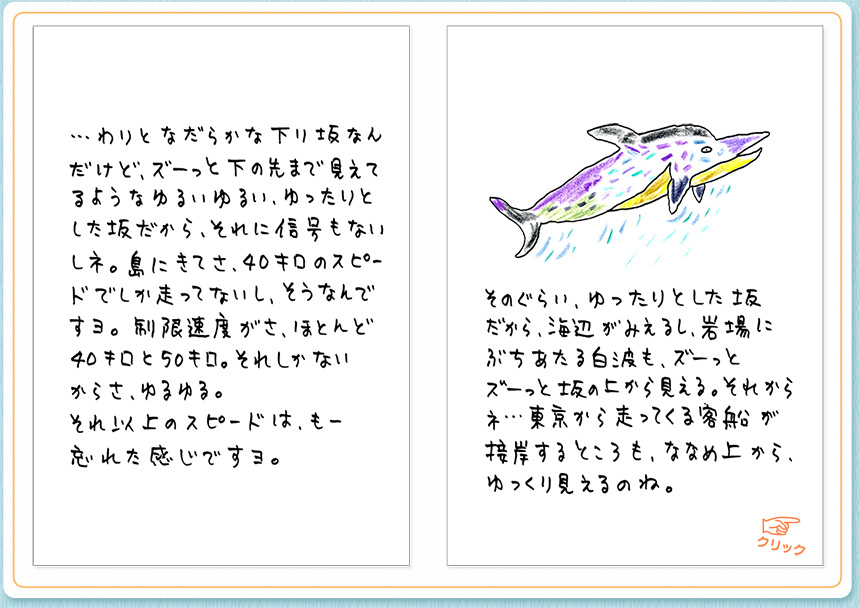 …わりとなだらかな下り坂なん
だけど、ズーっと下の先まで見えて
るようなゆるいゆるい、ゆったりと
した坂だから、それに信号もない
しネ。島にきてさ、40キロのスピー
ドでしか走ってないし、そうなんで
すヨ。制限速度がさ、ほとんど
40キロと50キロ。それしかない
からさ、ゆるゆる。
それ以上のスピードは、もー
忘れた感じですヨ。
そのぐらい、ゆったりとした坂
だから、海辺がみえるし、岩場に
ぶちあたる白波も、ズーっと
ズーっと坂の上から見える。それから
ネ…東京から走ってくる客船が
接岸するところも、ななめ上から、
ゆっくり見えるのね。
クリック